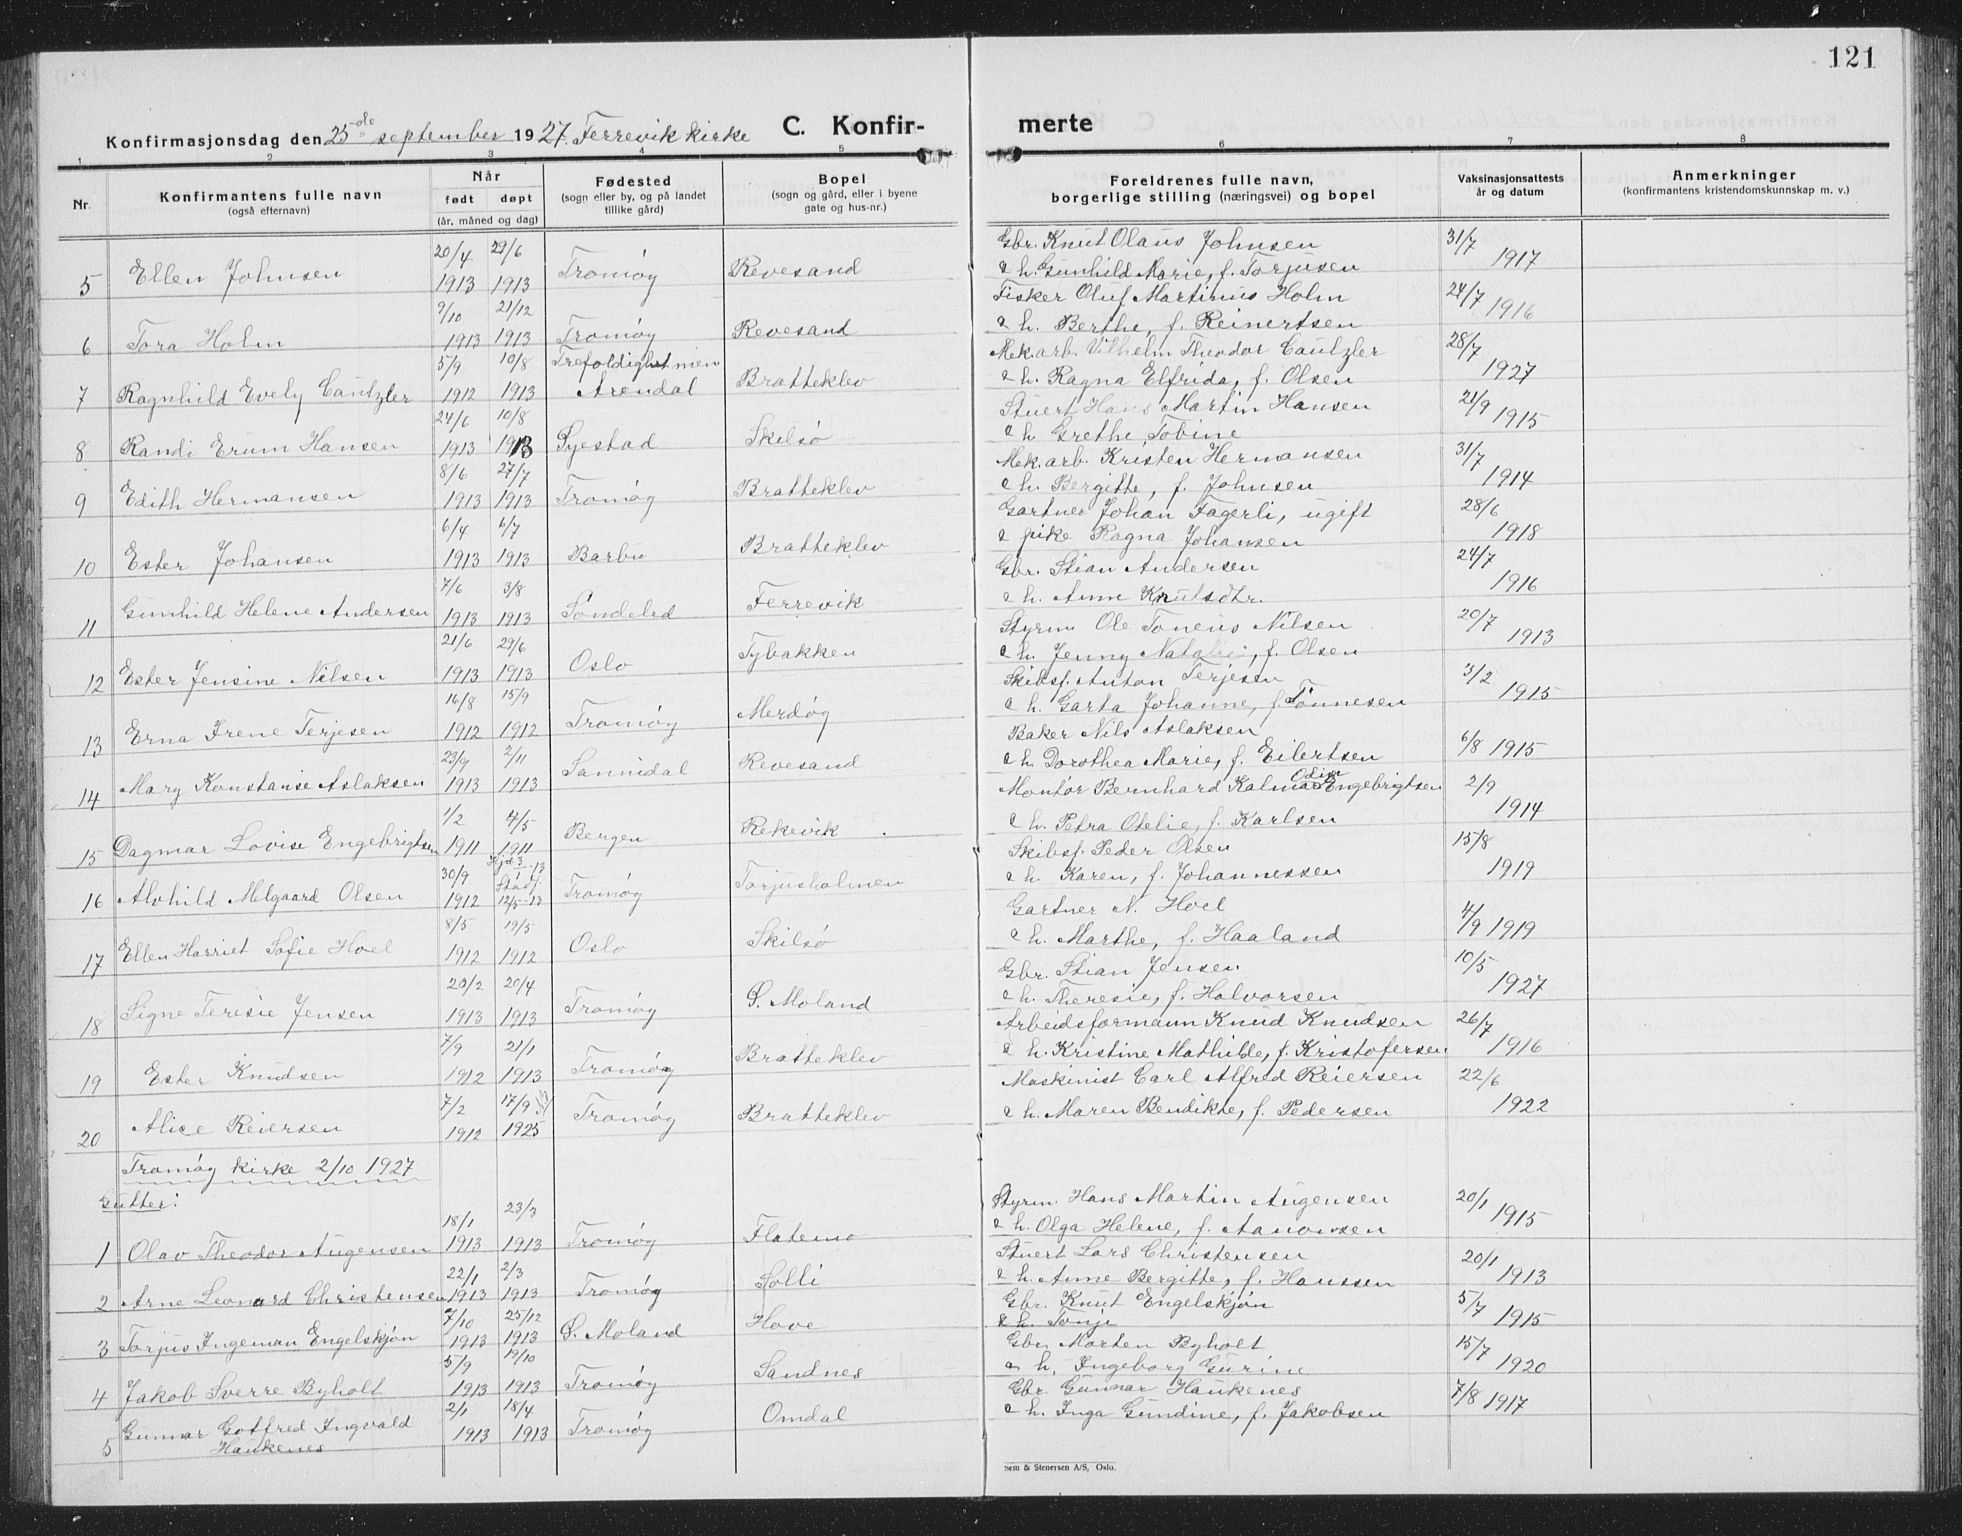 121
Konfirmasjonsdag den 25de september 1927. Færrevik kirke C. Konfir- merte
1 2 3 4 5 6 7 8
Nr. Konfirmantens fulle navn (også efternavn) Når født døpt (år, måned og dag) Fødested (sogn eller by, og på landet tillike gård) Bopel (sogn og gård, eller i byene gate og hus-nr.) Foreldrenes fulle navn, borgerlige stilling (næringsvei) og bopel Vaksinasjonsattests år og datum Anmerkninger (konfirmantens kristendomskunnskap m. v.)
5 Ellen Johnsen 20/4 1913 29/6 1913 Tromøy Revesand Gbr. Knut Olaus Johnsen & h. Gunhild Marie, f. Torjusen 31/7 1917
6 Tora Holm 9/10 1913 21/12 1913 Tromøy Revesand Fisker Oluf Martinus Holm & h. Berthe, f. Reinertsen 24/7 1916
7 Ragnhild Evely Cantzler 5/9 1912 10/8 1913 Trefoldighet men Arendal Bratteklev Mek.arb. Vilhelm Theodor Cantzler & h. Ragna Elfrida, f. Olsen 28/7 1927
8 Randi Erum Hansen 24/6 1913 10/8 1913 Øyestad Skilsø Stuert Hans Martin Hansen & h. Grethe Tobine 21/9 1915
9 Edith Hermansen 8/6 1913 27/7 1913 Tromøy Bratteklev Mek.arb. Kristen Hermansen & h. Bergitte, f. Johnsen 31/7 1914
10 Ester Johansen 6/4 1913 6/7 1913 Barbu Bratteklev Gartner Johan Fagerli, ugift & pike Ragna Johansen 28/6 1918
11 Gunhild Helene Andersen 7/6 1913 3/8 1913 Søndeled Færrevik Gbr. Stian Andersen & h. Anne Knutsdtr. 24/7 1916
12 Ester Jensine Nilsen 21/6 1913 29/6 1913 Oslo Tybakken Styrm. Ole Tonens Nilsen & h. Jenny Natalie, f. Olsen 20/7 1913
13 Erna Irene Terjesen 16/8 1912 15/9 1912 Tromøy Merdøy Skibsf. Anton Terjesen & h. Garta Johanne, f. Tønnesen 3/2 1915
14 Mary Konstanse Aslaksen 23/9 1913 2/11 1913 Sannidal Revesand Baker Nils Aslaksen & h. Dorothea Marie, f. Eilertsen 6/8 1915
15 Dagmar Lovise Engebrigtsen 1/2 1911 4/5 1911 Bergen Rekevik Montør Bernhard Kalmar Odin Engebrigtsen & h. Petra Otelie, f. Karlsen 2/9 1914
16 Alvhild Melgaard Olsen 30/9 1912 Hjd. 3/1-13 Stadf. 12/5-13 Tromøy Torjusholmen Skibsf. Peder Olsen & h. Karen, f. Johannessen 15/8 1919
17 Ellen Harriet Sofie Hoel 8/5 1912 19/5 1912 Oslo Skilsø Gartner N. Hoel & h. Marthe, f. Haaland 4/9 1919
18 Signe Teresie Jensen 20/2 1913 20/4 1913 Tromøy Ø. Moland Gbr. Stian Jensen & h. Theresie, f. Halvorsen 10/5 1927
19 Ester Knudsen 7/9 1912 21/1 1913 Tromøy Bratteklev Arbeidsformann Knud Knudsen & h. Kristine Mathilde, f. Kristofersen 26/7 1916
20 Alice Reiersen 7/2 1912 17/9 1925 Tromøy Bratteklev Maskinist Carl Alfred Reiersen & h. Maren Bendikte, f. Pedersen 22/6 1922
Tromøy kirke 2/10 1927
Gutter:
1 Olav Theodor Augensen 18/1 1913 23/3 1913 Tromøy Flatemo Styrm. Hans Martin Augensen & h. Olga Helene, f. Aanonsen 20/1 1915
2 Arne Leonard Christensen 22/1 1913 2/3 1913 Tromøy Solli Stuert Lars Christensen & h. Anne Bergitte, f. Hanssen 20/1 1913
3 Torjus Ingeman Engelskjøn 7/10 1913 25/12 1913 Ø. Moland Hove Gbr. Knut Engelskjøn & h. Tonje 5/7 1915
4 Jakob Sverre Byholt 5/9 1913 19/10 1913 Tromøy Sandnes Gbr. Morten Byholt & h. Ingeborg Gurine 15/7 1920
5 Gunnar Gotfred Ingvald Haukenes 2/1 1913 18/4 1913 Tromøy Omdal Gbr. Gunnar Haukenes & h. Inga Gundine, f. Jakobsen 7/8 1917
Sem & Stenersen A/S, Oslo.